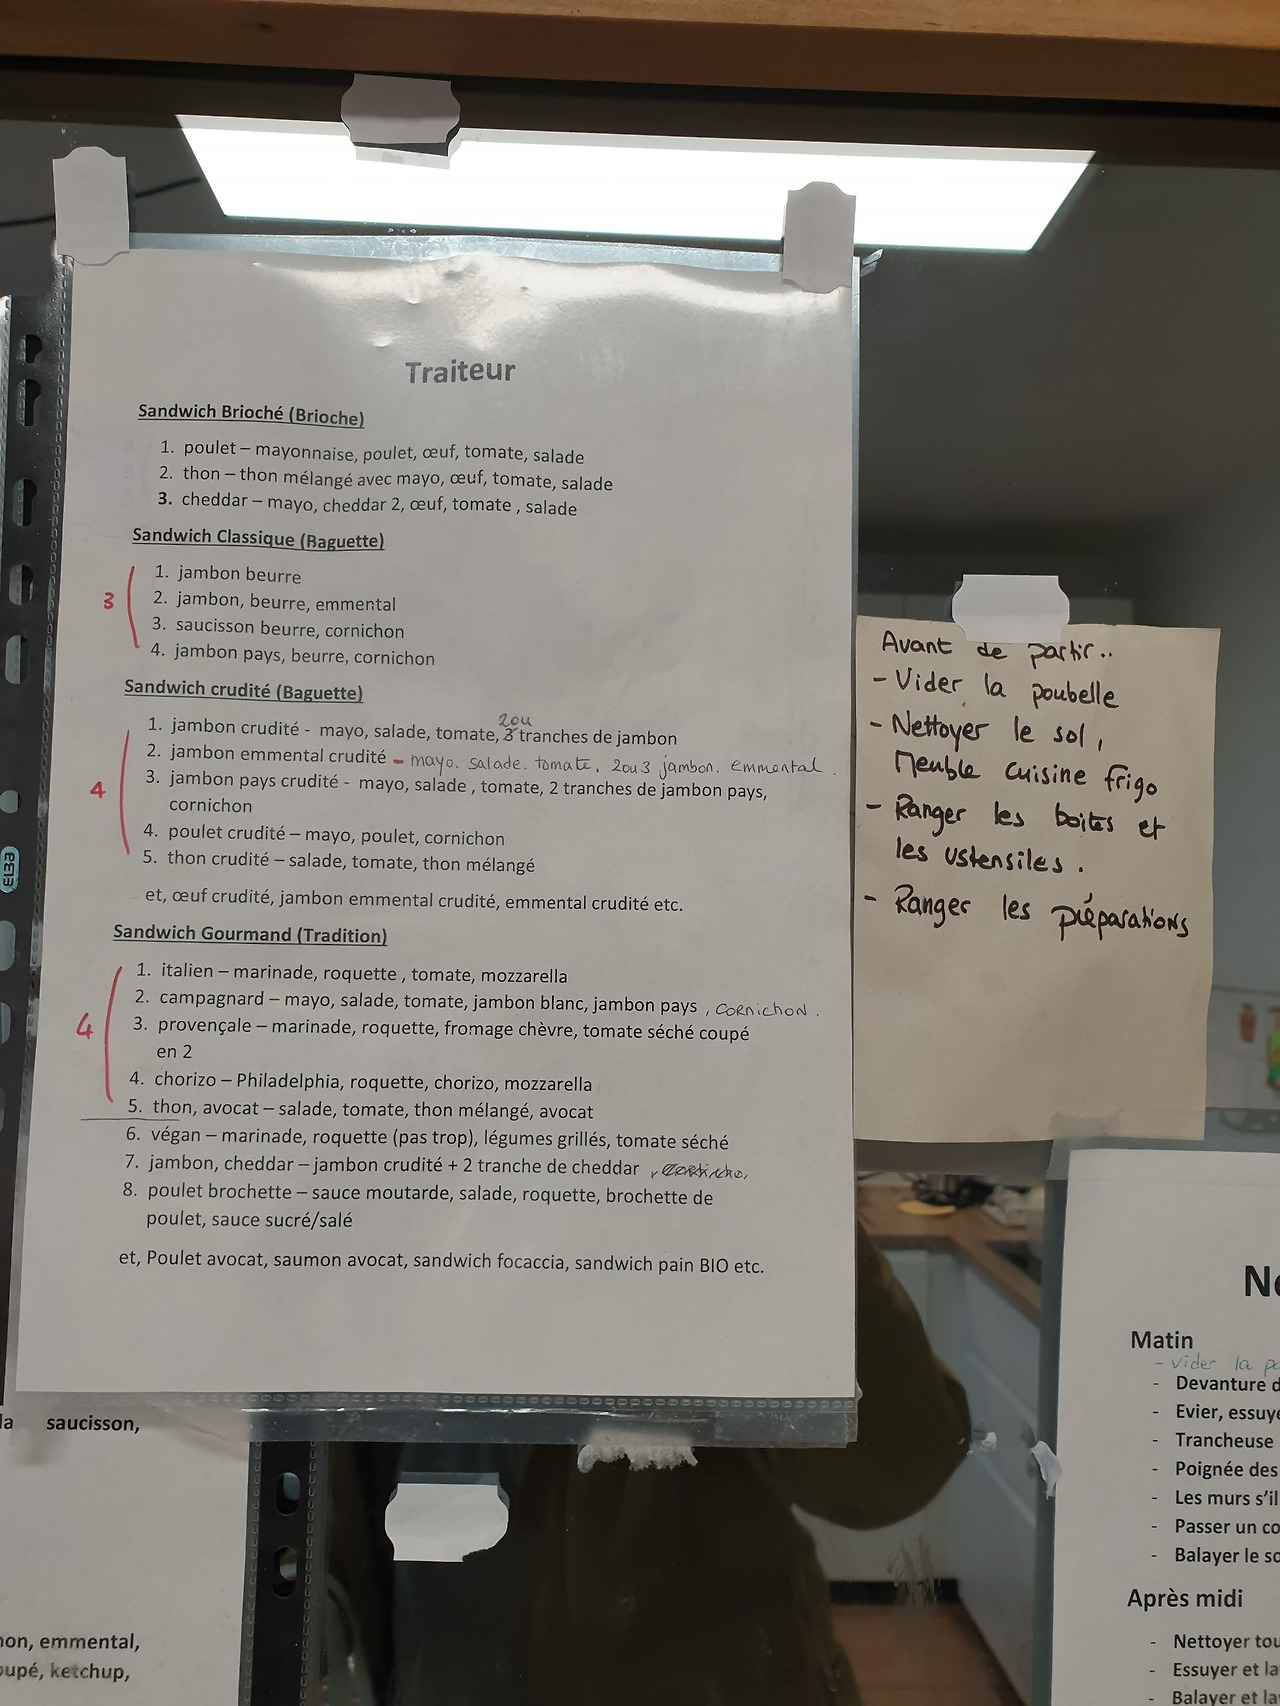 Traiteur
Sandwich Brioché (Brioche)
1. poulet – mayonnaise, poulet, œuf, tomate, salade
2. thon – thon mélangé avec mayo, œuf, tomate, salade
3. cheddar – mayo, cheddar 2, œuf, tomate , salade
Sandwich Classique (Baguette)
1. jambon beurre
2. jambon, beurre, emmental
3
3. saucisson beurre, cornichon
4. jambon pays, beurre, cornichon
Sandwich crudité (Baguette)
2ou
1. jambon crudité - mayo, salade, tomate, 3 tranches de jambon
2. jambon emmental crudité – mayo. salade. tomate. 2ou3 jambon. emmental.
3. jambon pays crudité - mayo, salade , tomate, 2 tranches de jambon pays,
4
cornichon
4. poulet crudité – mayo, poulet, cornichon
5. thon crudité – salade, tomate, thon mélangé
et, œuf crudité, jambon emmental crudité, emmental crudité etc.
Sandwich Gourmand (Tradition)
1. italien – marinade, roquette , tomate, mozzarella
2. campagnard – mayo, salade, tomate, jambon blanc, jambon pays , cornichon.
4
3. provençale – marinade, roquette, fromage chèvre, tomate séché coupé
en 2
4. chorizo – Philadelphia, roquette, chorizo, mozzarella
5. thon, avocat – salade, tomate, thon mélangé, avocat
6. végan – marinade, roquette (pas trop), légumes grillés, tomate séché
7. jambon, cheddar – jambon crudité + 2 tranche de cheddar
8. poulet brochette – sauce moutarde, salade, roquette, brochette de
poulet, sauce sucré/salé
et, Poulet avocat, saumon avocat, sandwich focaccia, sandwich pain BIO etc.
Avant de partir..
- Vider la poubelle
- Nettoyer le sol,
Meuble cuisine frigo
- Ranger les boites et
les ustensiles.
- Ranger les préparations
ELBA
saucisson,
emmental,
ketchup,
Matin
- vider la
- Devanture
- Evier,
- Trancheuse
- Poignée des
- Les murs
- Passer un
- Balayer le
Après midi
- Nettoyer
- Essuyer et
- Balayer et